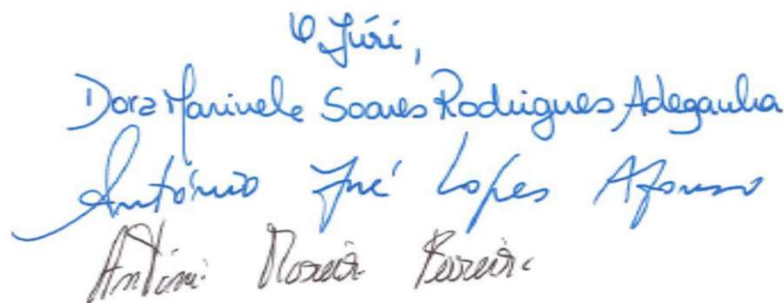 O Júri,
Dora Marinela Soares Rodrigues Adeganha
António José Lopes Afonso
António Moreira Pereira